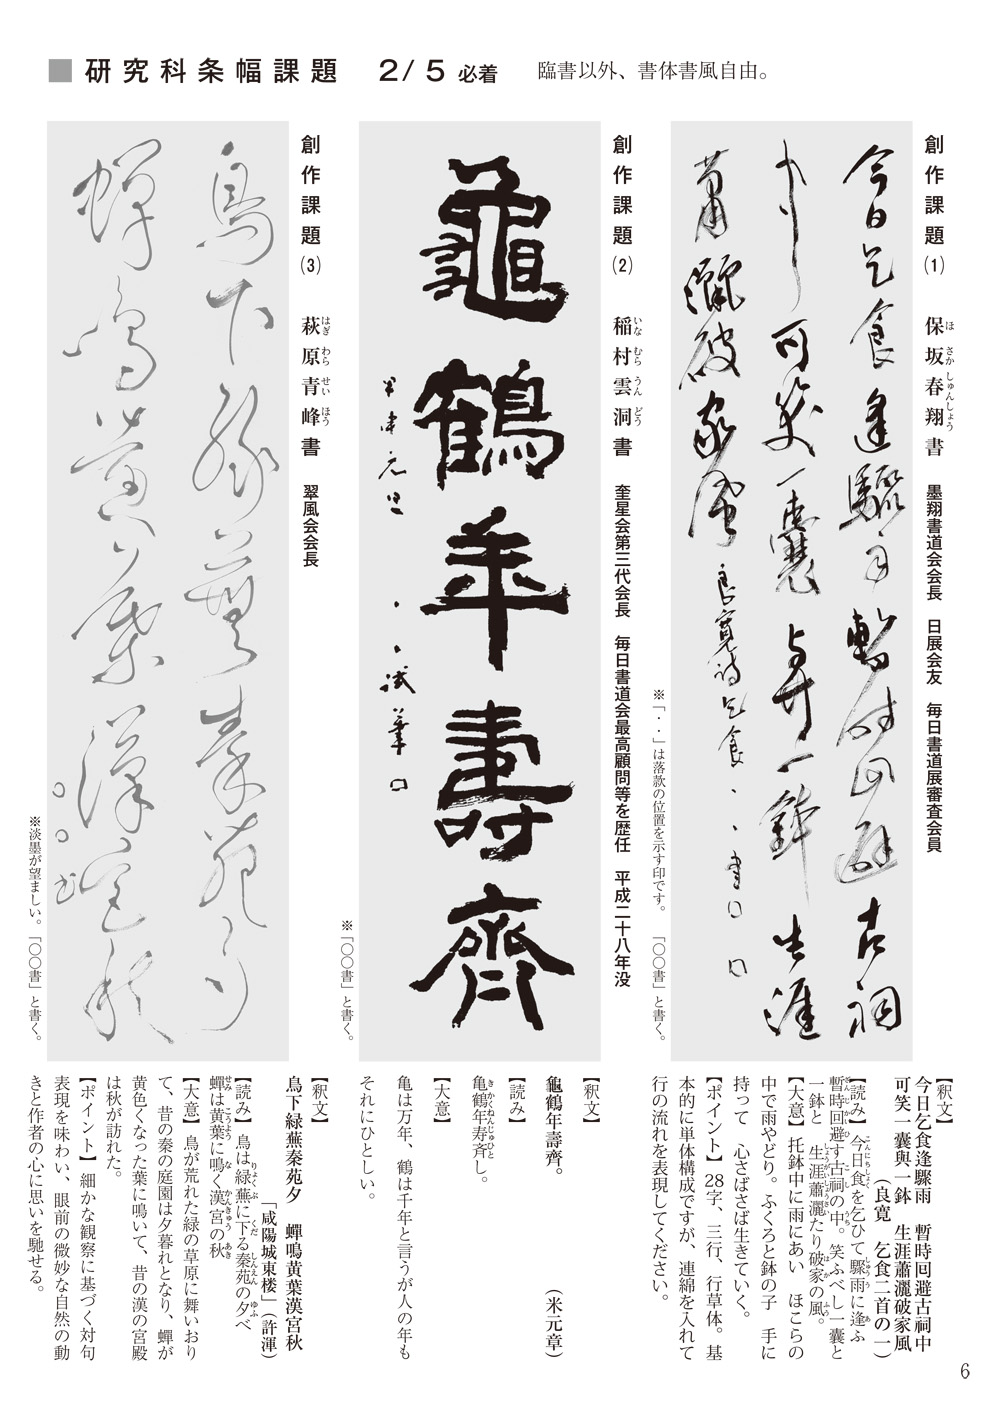 ■研究科条幅課題　2/5 必着　臨書以外、書体書風自由。
創作課題(1)　保坂春翔書　墨翔書道会会長　日展会友　毎日書道展審査会員
今日乞食逢驟雨暫時回避古祠
中可笑一嚢與一鉢生涯
蕭灑破家風　良寛詩乞食、、書□□
※「・・」は落款の位置を示す印です。　「〇〇書」と書く。
創作課題(2)　稲村雲洞書　奎星会第三代会長　毎日書道会最高顧問等を歴任　平成二十八年没
龜鶴年壽齊
米市元思、、試筆□
※「〇〇書」と書く。
創作課題(3)　萩原青峰書　翠風会会長
鳥下緑蕪秦苑夕
蟬鳴黄葉漢宮秋
〇〇書
※淡墨が望ましい。「〇〇書」と書く。
【釈文】
今日乞食逢驟雨　暫時回避古祠中
可笑一囊與一鉢　生涯蕭灑破家風
（良寛　乞食二首の一）
【読み】今日食を乞ひて驟雨に逢ふ
暫時回避す古祠の中。笑ふべし一囊と
一鉢と　生涯蕭灑たり破家の風。
【大意】托鉢中に雨にあい　ほこらの
中で雨やどり。ふくろと鉢の子　手に
持って　心さばさば生きていく。
【ポイント】28字、三行、行草体。基
本的に単体構成ですが、連綿を入れて
行の流れを表現してください。
【釈文】
龜鶴年壽齊。　（米元章）
【読み】
亀鶴年寿斉し。
【大意】
亀は万年、鶴は千年と言うが人の年も
それにひとしい。
【釈文】
鳥下緑蕪秦苑夕　蟬鳴黄葉漢宮秋
「咸陽城東楼」（許渾）
【読み】鳥は緑蕪に下る秦苑の夕べ
蟬は黄葉に鳴く漢宮の秋
【大意】鳥が荒れた緑の草原に舞いおり
て、昔の秦の庭園は夕暮れとなり、蟬が
黄色くなった葉に鳴いて、昔の漢の宮殿
は秋が訪れた。
【ポイント】細かな観察に基づく対句
表現を味わい、眼前の微妙な自然の動
きと作者の心に思いを馳せる。
6